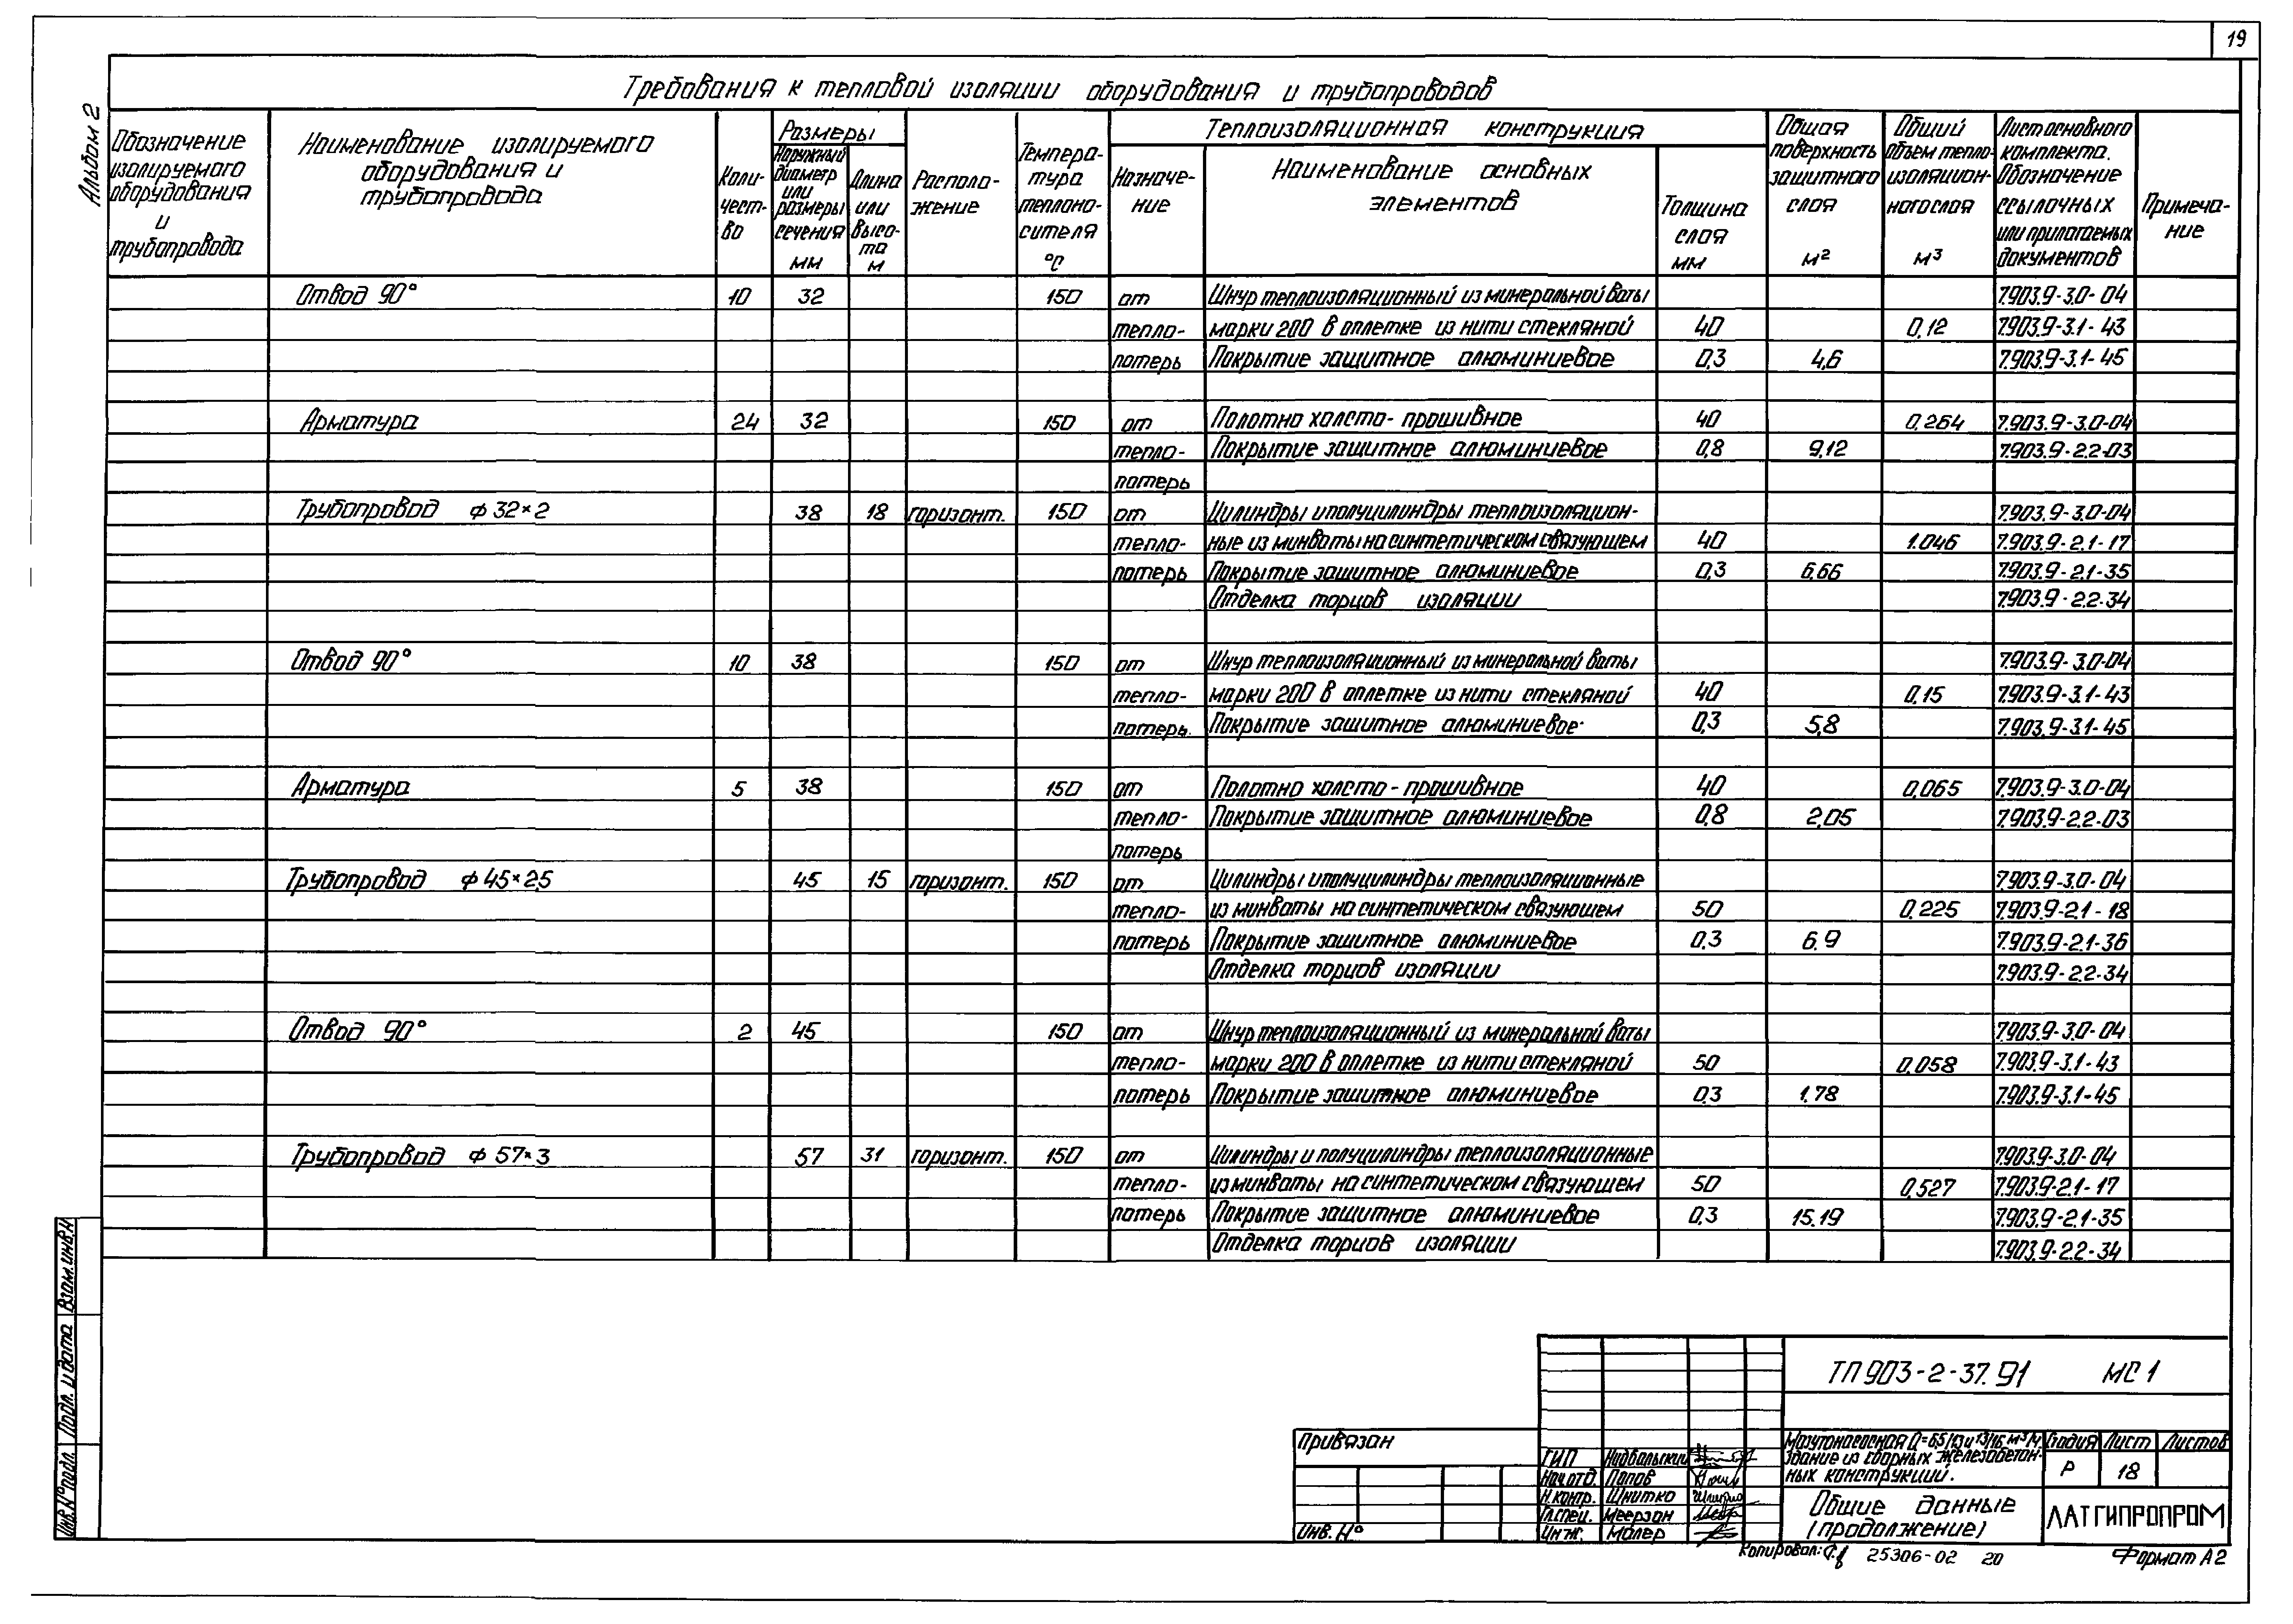 19
Альбом 2
Требования к тепловой изоляции оборудования и трубопроводов
Обозначение изолируемого оборудования и трубопровода
Наименование изолируемого оборудования и трубопровода
Коли-чест-во
Размеры
Наружный диаметр или размеры сечения мм
Длина или высо-та м
Располо-жение
Темпера-тура теплоно-сителя °С
Теплоизоляционная конструкция
Назначе-ние
Наименование основных элементов
Толщина слоя мм
Общая поверхность защитного слоя м²
Общий объем тепло-изоляцион-ного слоя м³
Лист основного комплекта. Обозначение ссылочных или прилагаемых документов
Примеча-ние
Отвод 90° 10 32 150 от Шнур теплоизоляционный из минеральной ваты 7.903.9-3.0-04
тепло- марки 200 в оплетке из нити стекляной 40 0,12 7.903.9-3.1-43
потерь Покрытие защитное алюминиевое 0,3 4,6 7.903.9-3.1-45
Арматура 24 32 150 от Полотно холсто-прошивное 40 0,264 7.903.9-3.0-04
тепло- Покрытие защитное алюминиевое 0,8 9,12 7.903.9-2.2-03
потерь
Трубопровод ф 32×2 38 18 горизонт. 150 от Цилиндры и полуцилиндры теплоизоляцион- 7.903.9-3.0-04
тепло- ные из минваты на синтетическом связующем 40 1.046 7.903.9-2.1-17
потерь Покрытие защитное алюминиевое 0,3 6,66 7.903.9-2.1-35
Отделка торцов изоляции 7.903.9-2.2-34
Отвод 90° 10 38 150 от Шнур теплоизоляционный из минеральной ваты 7.903.9-3.0-04
тепло- марки 200 в оплетке из нити стекляной 40 0,15 7.903.9-3.1-43
потерь. Покрытие защитное алюминиевое 0,3 5,8 7.903.9-3.1-45
Арматура 5 38 150 от Полотно холсто-прошивное 40 0,065 7.903.9-3.0-04
тепло- Покрытие защитное алюминиевое 0,8 2,05 7.903.9-2.2-03
потерь
Трубопровод ф 45×2,5 45 15 горизонт. 150 от Цилиндры и полуцилиндры теплоизоляционные 7.903.9-3.0-04
тепло- из минваты на синтетическом связующем 50 0,225 7.903.9-2.1-18
потерь Покрытие защитное алюминиевое 0,3 6,9 7.903.9-2.1-36
Отделка торцов изоляции 7.903.9-2.2-34
Отвод 90° 2 45 150 от Шнур теплоизоляционный из минеральной ваты 7.903.9-3.0-04
тепло- марки 200 в оплетке из нити стекляной 50 0,058 7.903.9-3.1-43
потерь Покрытие защитное алюминиевое 0,3 1,78 7.903.9-3.1-45
Трубопровод ф 57×3 57 31 горизонт. 150 от Цилиндры и полуцилиндры теплоизоляционные 7.903.9-3.0-04
тепло- из минваты на синтетическом связующем 50 0,527 7.903.9-2.1-17
потерь Покрытие защитное алюминиевое 0,3 15,19 7.903.9-2.1-35
Отделка торцов изоляции 7.903.9-2.2-34
Взам. инв. №
Подп. и дата
Инв. № подл.
Привязан
Инв. №
ТП 903-2-37.91 МС 1
ГИП
Нач. отд. Попов
Н. контр. Шнитко
Гл. спец. Меерзон
Инж. Малер
Мазутонасосная Q=6,5/13 и 13/16 м³/ч.
Здание из сборных железобетон-
ных конструкций.
Стадия Лист Листов
Р 18
Общие данные
(продолжение)
ЛАТГИПРОПРОМ
Копировал: 25306-02 20
Формат А2